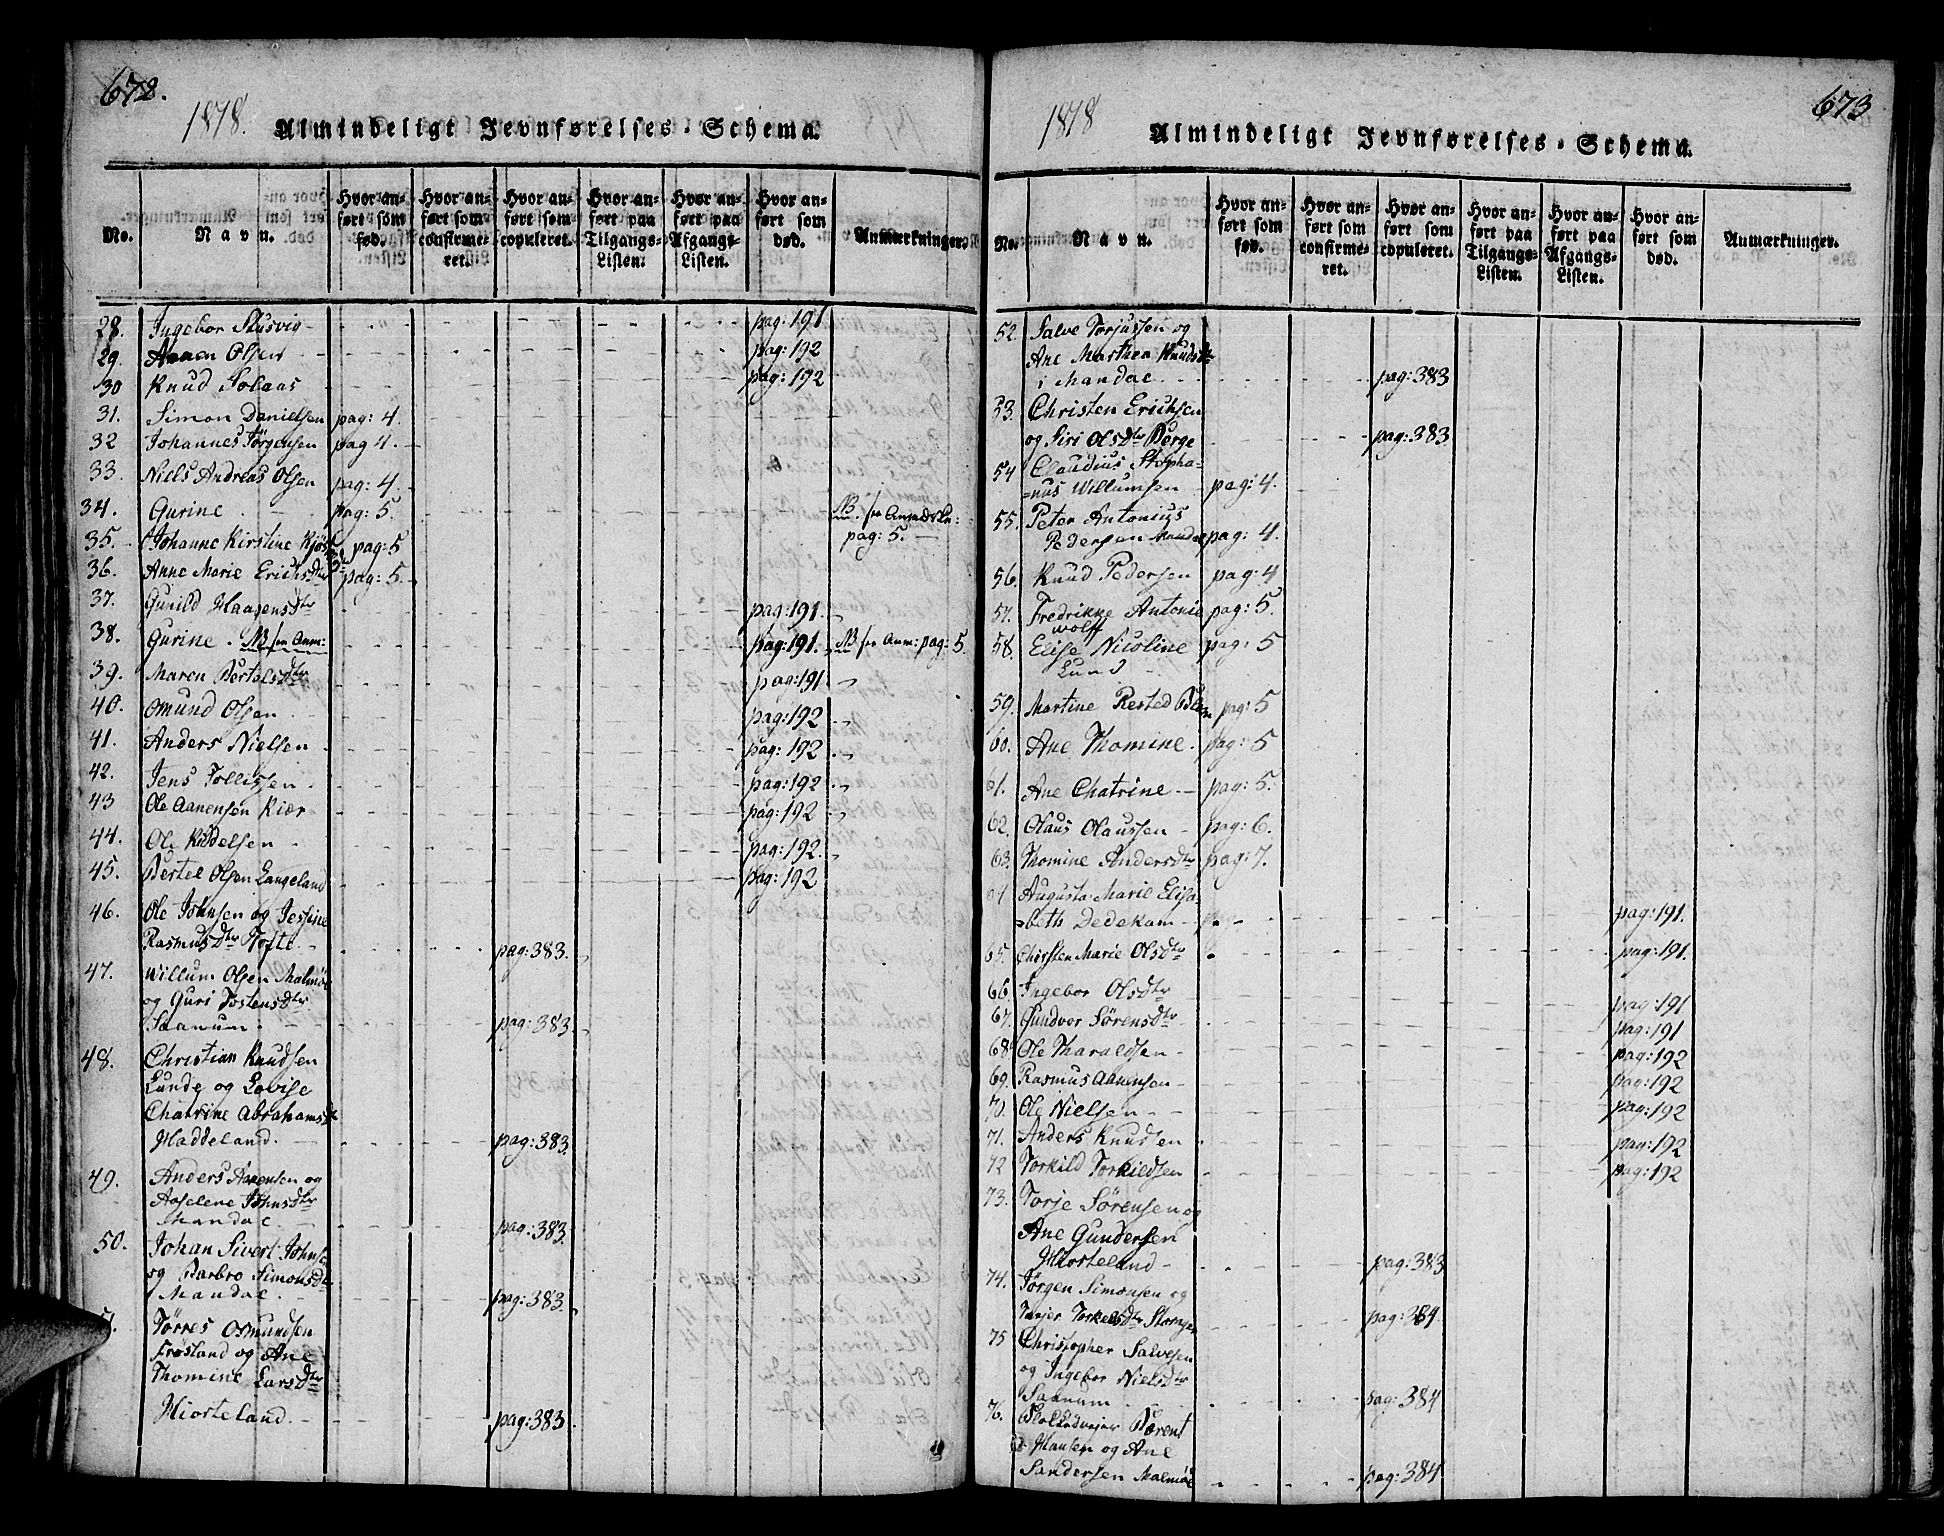 672.
1818. Almindeligt Jevnførelses-Schema.
No.
Navn.
Hvor anført som fød.
Hvor anført som confirmeret.
Hvor anført som copuleret.
Hvor anført paa Tilgangs-Listen.
Hvor anført paa Afgangs-Listen.
Hvor anført som død.
Anmærkninger.
28. Ingebor Skusvig pag: 191
29. Aanen Olsen pag: 192
30 Knud Solaas pag: 192
31. Simon Danielsen pag: 4.
32 Johannes Jörgensen pag 4.
33. Niels Andreas Olsen pag: 4.
34. Gurine pag: 5. NB. see Anmærkn:
35. Johanne Kirstine pag: 5 pag: 5.
36. Anne Marie Erichsdtr pag: 5.
37. Gunild Haagensdtr pag: 191.
38. Gurine. NB see Anm: pag: 191. NB see Anm: pag: 5.
39. Maren Bertelsdtr pag: 191
40. Omund Olsen pag: 192
41. Anders Nielsen pag: 192
42. Jens Tollissen pag: 192
43 Ole Aanensen Kiær pag: 192
44. Ole Kiddelsen pag: 192.
45. Bertel Olsen Langeland pag: 192
46. Ole Johnsen og Jessine
Rasmusdtr Tofte pag: 383.
47. Willum Olsen Malmöe
og Guri Tostensdtr
Saanum. pag: 383
48. Christian Knudsen
Lunde og Lovise
Chatrine Abrahamsdtr
Haddeland. pag: 383.
49. Anders Aanensen og
Aaselene Johnsdtr
Mandal pag: 383.
50. Johan Sivert Johns
og Barbro Simonsdtr
Mandal. pag: 383.
Törres Osmundsen
Fröstand og Ane
Thomine Larsdtr
Hiorteland. pag: 383.
673
1818 Almindeligt Jevnførelses-Schema.
No.
Navn.
Hvor anført som fød.
Hvor anført som confirmeret.
Hvor anført som copuleret.
Hvor anført paa Tilgangs-Listen.
Hvor anført paa Afgangs-Listen.
Hvor anført som død.
Anmærkninger.
52. Salve Torjussen og
Ane Marthea Knudsdtr
i Mandal pag: 383
53. Christen Erichsen
og Siri Olsdtr Berge pag: 383.
54 Claudius Stepha=
=nus Willumsen pag: 4.
55. Peter Antonius
Pedersen Mandal pag: 4.
56. Knud Pedersen pag: 4
57. Fredrikke Antonie pag: 5.
Wolff
58. Elise Nicoline pag: 5
Lund
59. Martine Rested pag: 5
60. Ane Thomine. pag: 5
61. Ane Chatrine pag: 5.
62. Olaus Olaussen pag: 6.
63. Thomine Andersdtr pag: 7.
64 Augusta Marie Elisa
=beth Dedekam pag: 191.
65. Chirsten Marie Olsdtr pag: 191.
66. Ingebor Olsdtr pag: 191
67. Gundvor Sörensdtr pag: 191
68. Ole Tharaldsen pag: 192
69. Rasmus Aanensen pag: 192
70. Ole Nielsen pag: 192
71. Anders Knudsen pag: 192
72 Torkild Torkildsen pag: 192
73. Torje Sörensen og
Ane Gundersen
Hiorteland pag: 383
74. Jörgen Simonsen og
Torkelsdtr pag: 384.
75 Christopher Salvesen
og Ingebor Nielsdtr
Saanum pag: 384
76. Bærent
Hansen og Ane
Sandersen Malmöe pag: 384